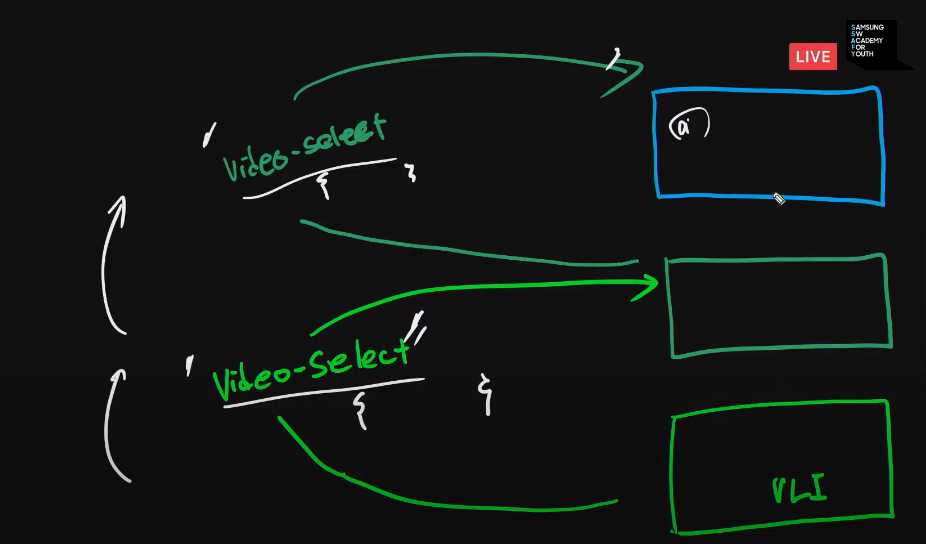 SAMSUNG
SW
ACADEMY
FOR
YOUTH
LIVE
" video-select
{ }
" Video-Select "
{ }
VLI